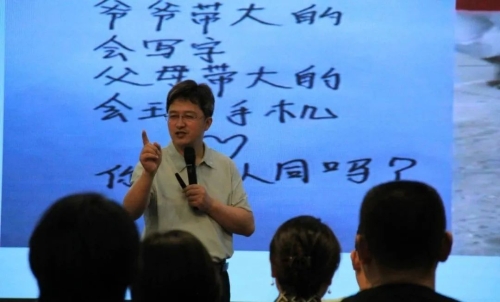 爷爷带大的
会写字
父母带大的
会 手机
你 人同吗？